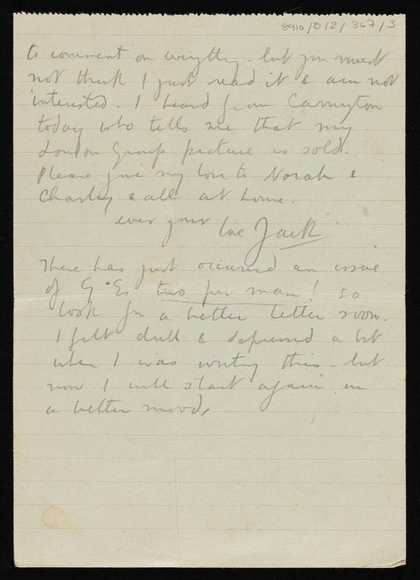 8910/012/367/3
to comment on everythg. but you must
not think I just read it & am not
interested. I heard from Carrington
today who tells me that my
London Group picture is sold.
Please give my love to Norah &
Charley & all at home.
ever your love Jack
There has just occurred an issue
of G.Es. two per man! so
look for a better letter soon.
I felt dull & depressed a bit
when I was writing this. but
now I will start again in
a better mood.